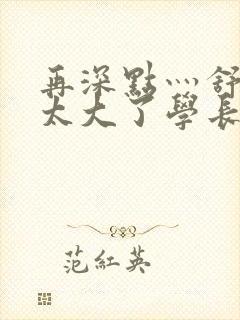 再深點灬舒
太大了學長
范紅英